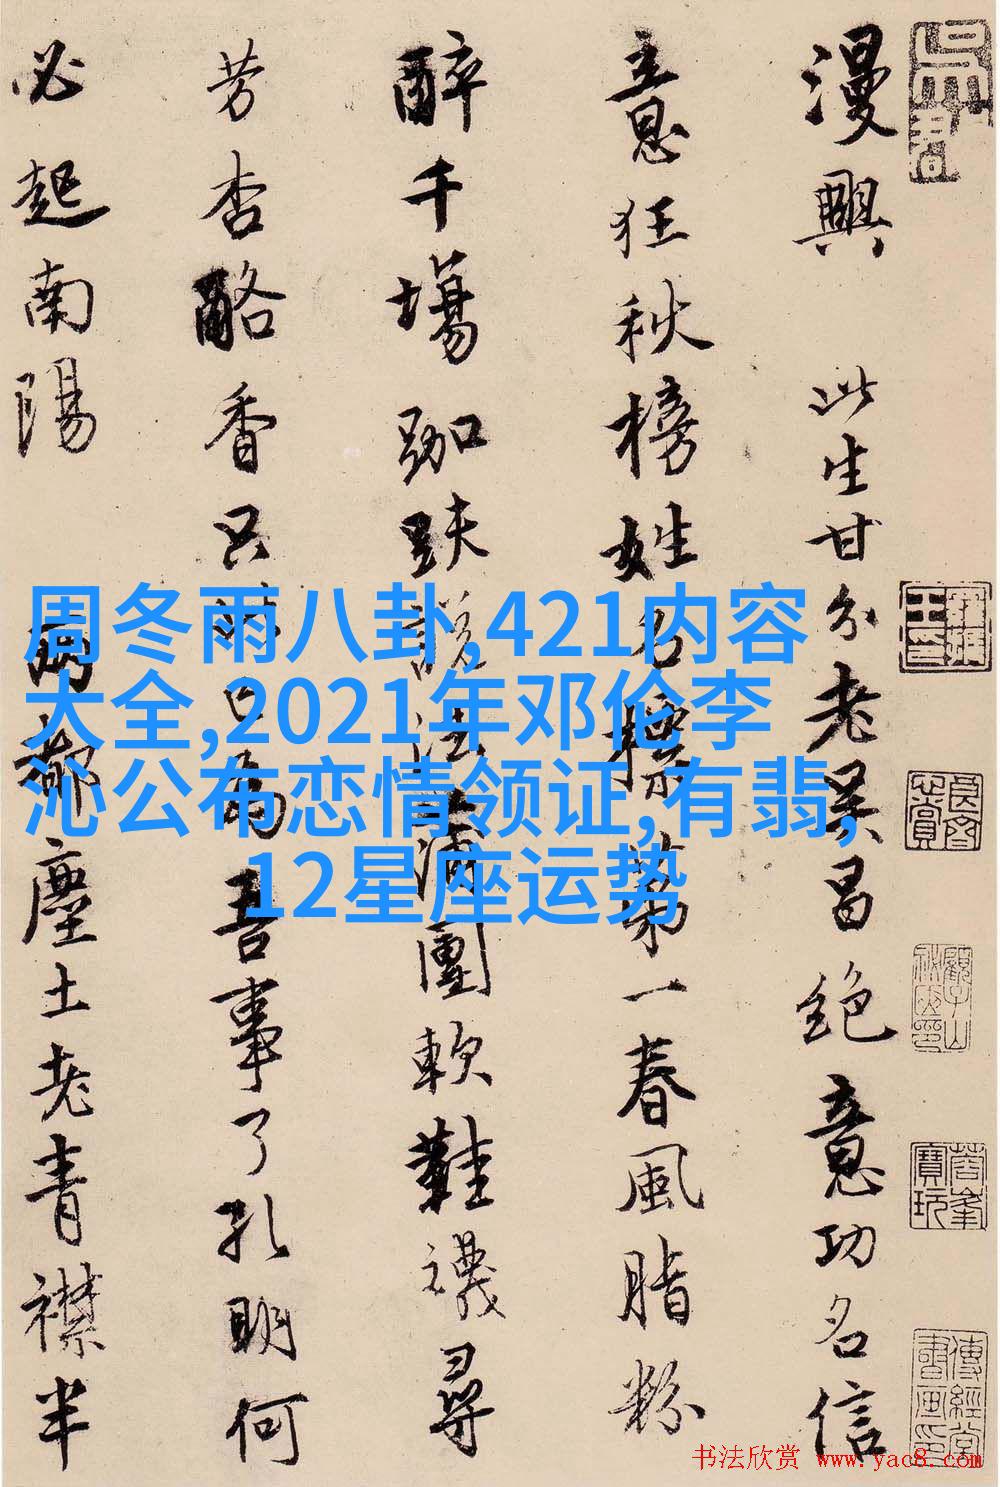 漫興 此生甘分老吴昌絕意功名信
意狂秋榜姓名標第一春風脂粉
醉千場跏趺説法蒲團軟鞋襪尋
芳杏酪香只為吾事了孔明何
必起南陽 塵土老青襟半
周冬雨八卦,421内容
大全,2021年邓伦李
沁公布恋情领证,有翡,
12星座运势
书法欣赏 www.yac8.com